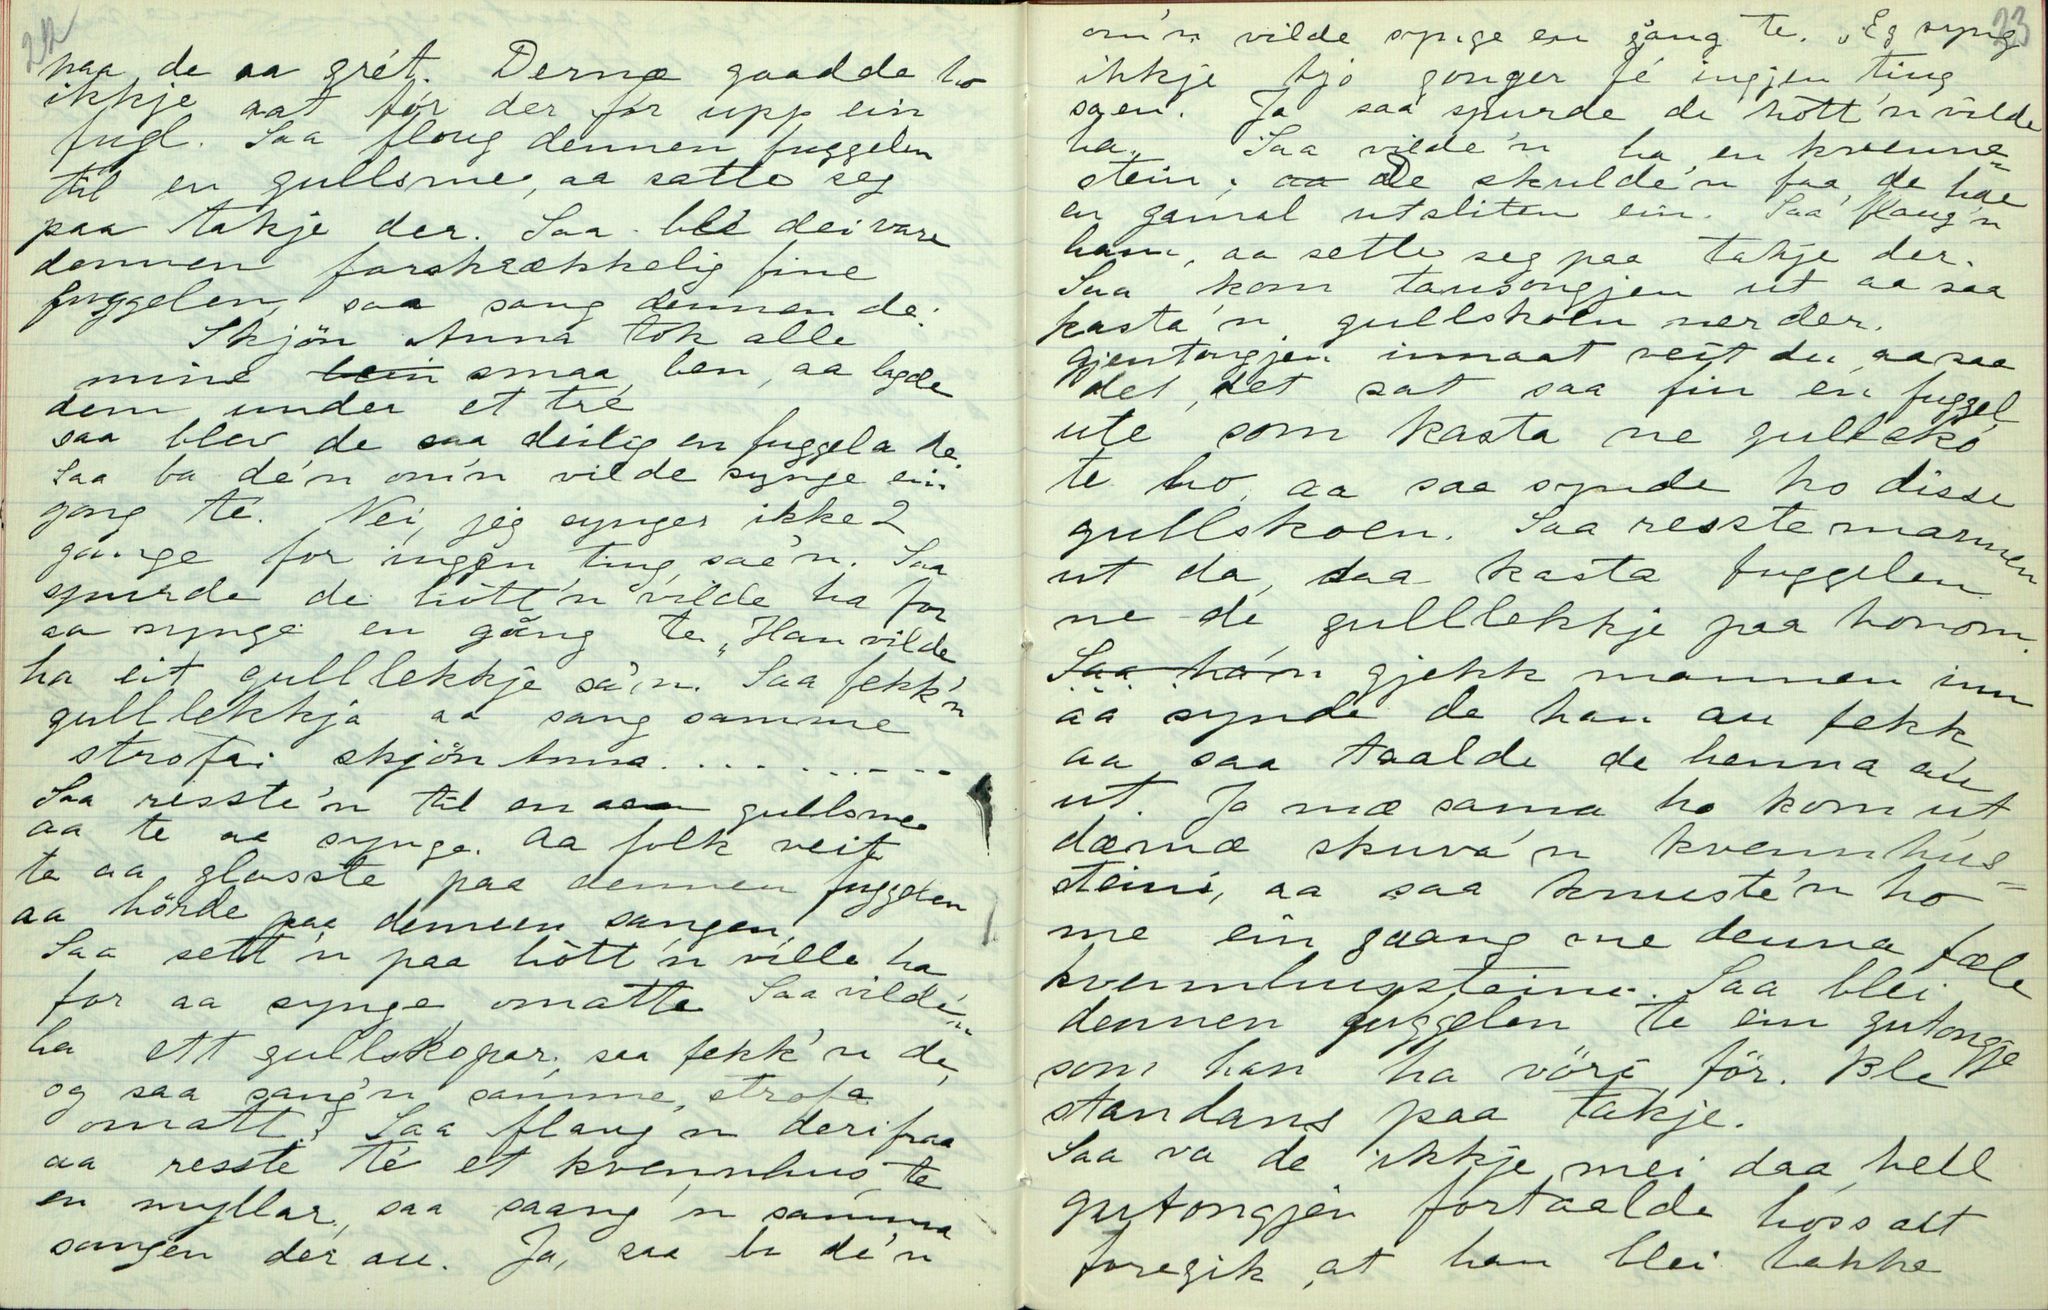 22
paa de aa grét. Dernæ gaadde ho
ikkje aat før der før upp ein
fugl. Saa floug dennen fuggelen
til en gullsme, aa satte seg
paa takje der. Saa blé dei vare
dennen forskrækkelig fine
fuggelen, saa sang dennen de:
Skjön Anna tok alle
mine bein smaa ben, aa lagde
dem under et tré
saa blev de saa deilig en fuggel a de.
Saa ba dé'n om'n vilde synge ein
gong te. Nei, jeg synger ikke 2
gange for inggen ting, sae'n. Saa
spurde de hött'n vilde ha for
aa synge en gång te. "Han vilde
ha eit gulllekkje sa'n. Saa fekk'n
gulllekkja aa sang samme
strofa: skjön Anna. . . . . . . . . .
Saa resste'n til en aen gullsme
aa te aa synge. Aa folk veit
te aa glosste paa dennen fuggelen
aa hörde paa dennen sangen.
Saa sett'n paa hött'n ville ha
for aa synge omatte. Saa vildé'n
ha ett gullskopar, saa fekk'n de,
og saa sang'n samme, strofa
omatt. Saa flaug'n derifraa
aa resste té et kvennhus, te
en myllar, saa saang'n samma
sangen der au. Ja, saa ba dé'n
23
om'n vilde synge en gång te. "Eg syng
ikkje tjo gonger fé ingjen ting
sa'en. Ja saa spurde de hött'n vilde
ha. Saa vilde'n ha en kvenne=
stein; aa De skulde'n faa, de hae
en gamal utsliten ein. Saa flaug'n
ham, aa sette seg paa takje der.
Saa kom tausongjen ut aa saa
kasta'n gullskoen ner der.
gjentongjen innaat veit du aa saa
det, det sat saa fin en fuggel
ute som kasta ne gullskó
te ho, aa saa synde ho disse
gullskoen. Saa resste mannen
ut da, saa kasta fuggelen
ne de gulllekkje paa honom.
Saa ha'n gjekk mannen inn
aa synde de han au fekk
aa saa taalde de henna au
ut. Ja mæ sama ho kom ut,
dæmæ skuva'n kvennhus=
steini, aa saa knuste'n ho
me ein gaang me denna fæle
kvennhussteini. Saa blei
dennen fuggelen te ein gutongje
som han ha vöri för. Ble
standans paa takje.
Saa va de ikkje mei daa, hell
gutongjen fortaalde hoss alt
foregik, at han blei hakka